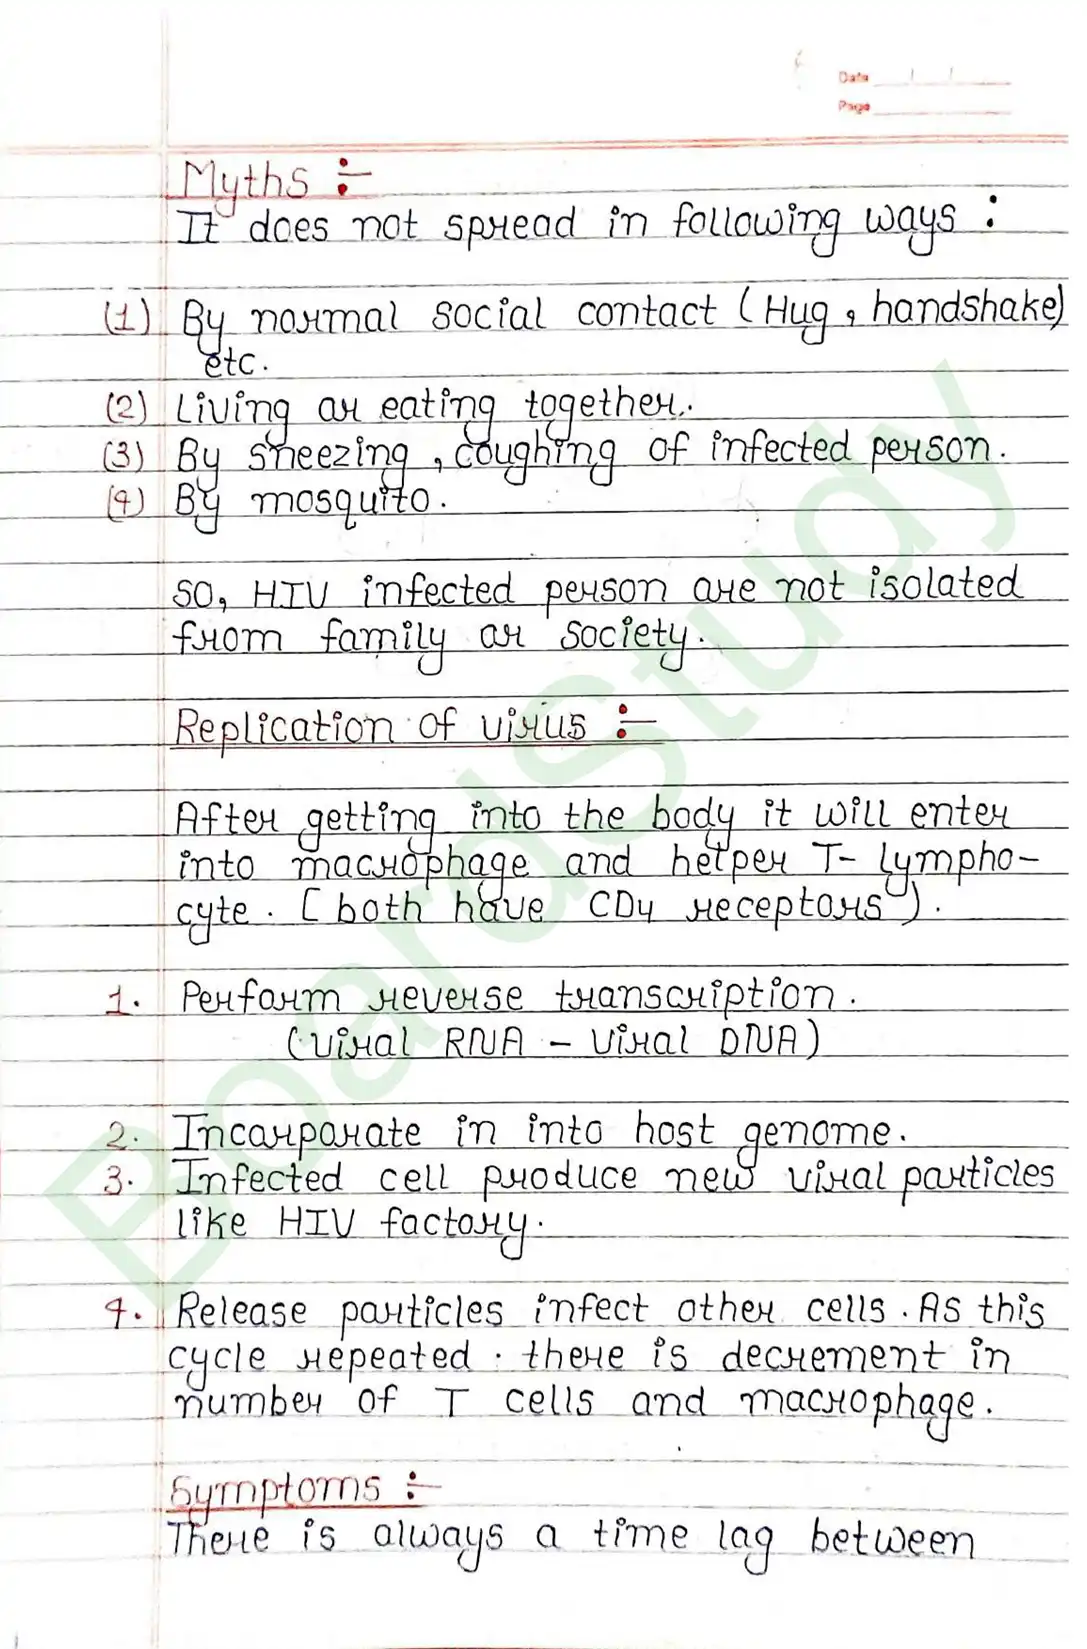 Date / /
Page
Myths :-
It does not spread in following ways :
(1) By normal social contact (Hug, handshake)
etc.
(2) Living or eating together.
(3) By sneezing, coughing of infected person.
(4) By mosquito.
So, HIV infected person are not isolated
from family or society.
Replication of virus :-
After getting into the body it will enter
into macrophage and helper T- lympho-
cyte. [both have CD4 receptors).
1. Perform reverse transcription.
(viral RNA - viral DNA)
2. Incorporate in into host genome.
3. Infected cell produce new viral particles
like HIV factory.
4. Release particles infect other cells. As this
cycle repeated. there is decrement in
number of T cells and macrophage.
Symptoms :-
There is always a time lag between
BoardStudy